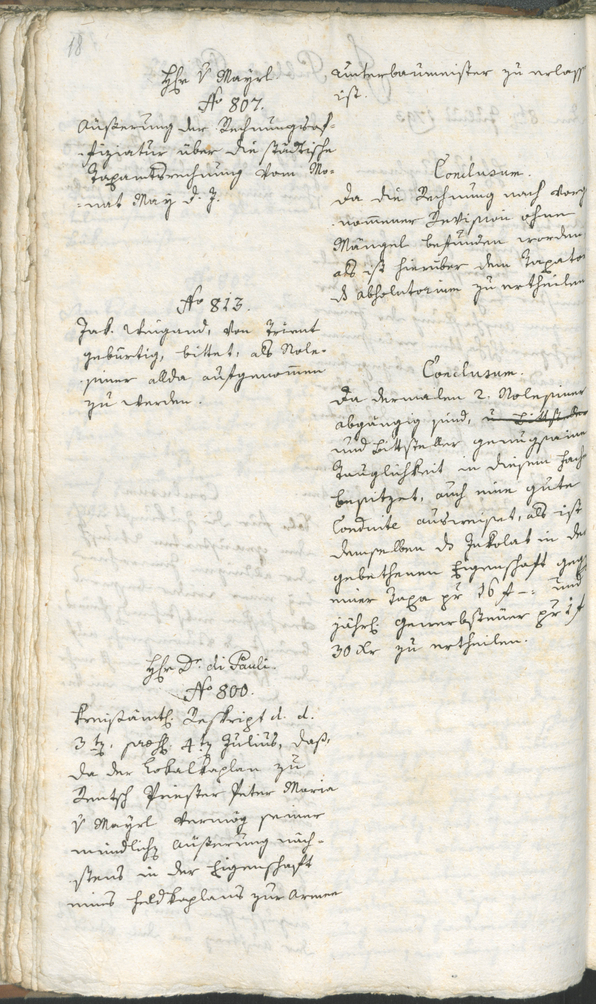 18
Hhr v Mayrl
No 807.
Äußerung der Rechnungsof-
ifiziatur über die städtische
Taxamtsrechnung vom Mo-
-nat May d. J.
No 813.
Jak. Weigand, von Trient
gebürtig, bittet, als Role-
-siner allda aufgenommen
zu werden.
Hhr Dr. di Pauli.
No 800.
Kreisämtl. Reskript d. d.
3tz. praes. 4tz Julius, daß,
da der Lokalkaplan zu
Rentsch Priester Peter Maria
v Mayrl vermög seiner
mündlichen Äußerung näch-
-stens in der Eigenschaft
eines Feldkaplans zur Armee
Unterbaumeister zu erlass
ist.
Conclusum.
Da die Rechnung nach vorg
-nommener Revision ohne
Mängel befunden worden
als ist hierüber dem Taxator
ds Absolutorium zu ertheilen
Conclusum.
Da dermalen 2. Rolesiner
abgängig sind, u. Bittsteller
und Bittsteller genugsame
Tauglichkeit in diesem Fach
besitzet, auch eine gute
Conduite ausweiset, als ist
demselben ds Inkolat in der
gebethenen Eigenschaft geg
einer Taxa pr 16 f -: und
jährl. Gewerbsteuer pr 1 f
30 xr zu ertheilen.